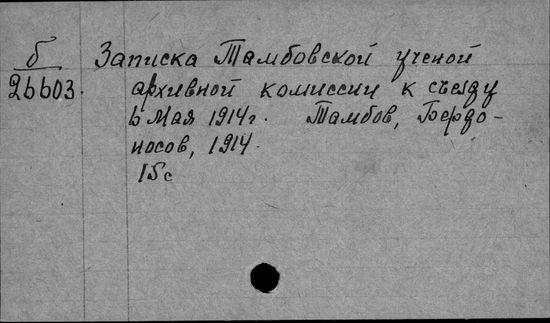 б
26603.
Записка Тамбовской ученой
архивной комиссии к съезду
6 Мая 1914г. Тамбов, Бердо-
носов, 1914.
15с